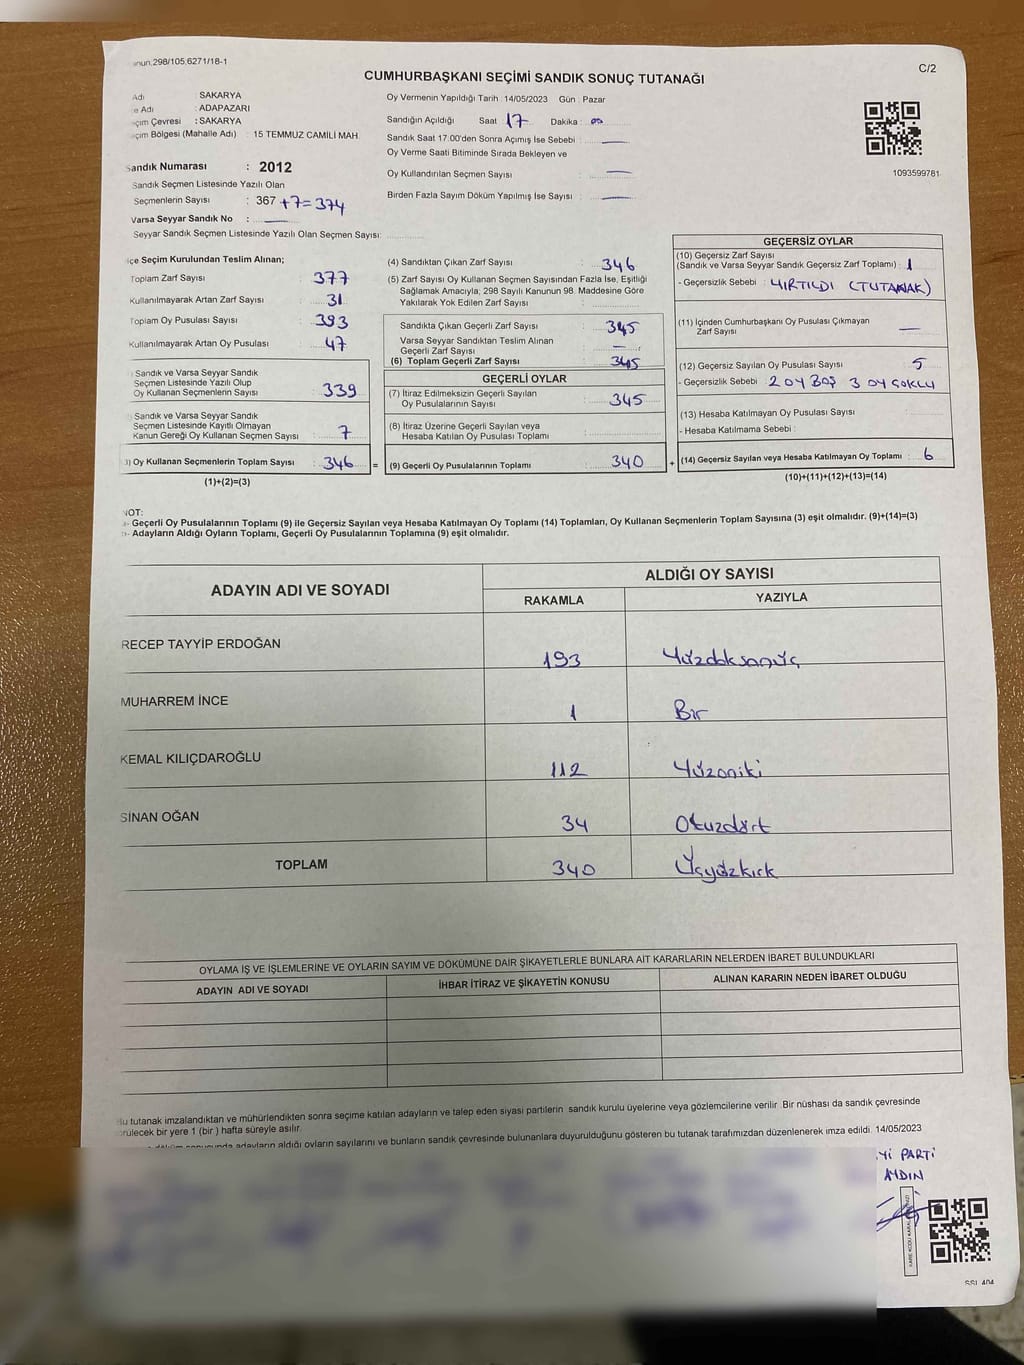 anun.298/105,6271/18-1
C/2
CUMHURBAŞKANI SEÇİMİ SANDIK SONUÇ TUTANAĞI
Adı SAKARYA
e Adı : ADAPAZARI
çim Çevresi : SAKARYA
çim Bölgesi (Mahalle Adı) : 15 TEMMUZ CAMİLİ MAH.
Sandık Numarası : 2012
Sandık Seçmen Listesinde Yazılı Olan
Seçmenlerin Sayısı : 367 +7=374
Varsa Seyyar Sandık No : —
Seyyar Sandık Seçmen Listesinde Yazılı Olan Seçmen Sayısı:
Oy Vermenin Yapıldığı Tarih 14/05/2023 Gün : Pazar
Sandığın Açıldığı Saat : 17 Dakika : 00
Sandık Saat 17:00'den Sonra Açımış İse Sebebi : —
Oy Verme Saati Bitiminde Sırada Bekleyen ve
Oy Kullandırılan Seçmen Sayısı : —
Birden Fazla Sayım Döküm Yapılmış İse Sayısı : —
1093599781
içe Seçim Kurulundan Teslim Alınan;
Toplam Zarf Sayısı : 377
Kullanılmayarak Artan Zarf Sayısı : 31
Toplam Oy Pusulası Sayısı : 393
Kullanılmayarak Artan Oy Pusulası : 47
Sandık ve Varsa Seyyar Sandık
Seçmen Listesinde Yazılı Olup
Oy Kullanan Seçmenlerin Sayısı : 339
Sandık ve Varsa Seyyar Sandık
Seçmen Listesinde Kayıtlı Olmayan
Kanun Gereği Oy Kullanan Seçmen Sayısı : 7
3) Oy Kullanan Seçmenlerin Toplam Sayısı : 346 =
(1)+(2)=(3)
(4) Sandıktan Çıkan Zarf Sayısı : 346
(5) Zarf Sayısı Oy Kullanan Seçmen Sayısından Fazla İse, Eşitliği
Sağlamak Amacıyla; 298 Sayılı Kanunun 98. Maddesine Göre
Yakılarak Yok Edilen Zarf Sayısı :
Sandıkta Çıkan Geçerli Zarf Sayısı : 345
Varsa Seyyar Sandıktan Teslim Alınan
Geçerli Zarf Sayısı : —
(6) Toplam Geçerli Zarf Sayısı : 345
GEÇERLİ OYLAR
(7) İtiraz Edilmeksizin Geçerli Sayılan
Oy Pusulalarının Sayısı : 345
(8) İtiraz Üzerine Geçerli Sayılan veya
Hesaba Katılan Oy Pusulası Toplamı :
(9) Geçerli Oy Pusulalarının Toplamı : 340 +
GEÇERSİZ OYLAR
(10) Geçersiz Zarf Sayısı
(Sandık ve Varsa Seyyar Sandık Geçersiz Zarf Toplamı) : 1
- Geçersizlik Sebebi : YIRTILDI (TUTANAK)
(11) İçinden Cumhurbaşkanı Oy Pusulası Çıkmayan
Zarf Sayısı : —
(12) Geçersiz Sayılan Oy Pusulası Sayısı : 5
- Geçersizlik Sebebi : 2 OY BOŞ 3 OY ÇOKLU
(13) Hesaba Katılmayan Oy Pusulası Sayısı :
- Hesaba Katılmama Sebebi :
(14) Geçersiz Sayılan veya Hesaba Katılmayan Oy Toplamı : 6
(10)+(11)+(12)+(13)=(14)
NOT:
- Geçerli Oy Pusulalarının Toplamı (9) ile Geçersiz Sayılan veya Hesaba Katılmayan Oy Toplamı (14) Toplamları, Oy Kullanan Seçmenlerin Toplam Sayısına (3) eşit olmalıdır. (9)+(14)=(3)
- Adayların Aldığı Oyların Toplamı, Geçerli Oy Pusulalarının Toplamına (9) eşit olmalıdır.
ADAYIN ADI VE SOYADI
ALDIĞI OY SAYISI
RAKAMLA YAZIYLA
RECEP TAYYİP ERDOĞAN 193 Yüzdoksanüç
MUHARREM İNCE 1 Bir
KEMAL KILIÇDAROĞLU 112 Yüzoniki
SİNAN OĞAN 34 Otuzdört
TOPLAM 340 Üçyüzkırk
OYLAMA İŞ VE İŞLEMLERİNE VE OYLARIN SAYIM VE DÖKÜMÜNE DAİR ŞİKAYETLERLE BUNLARA AİT KARARLARIN NELERDEN İBARET BULUNDUKLARI
ADAYIN ADI VE SOYADI İHBAR İTİRAZ VE ŞİKAYETİN KONUSU ALINAN KARARIN NEDEN İBARET OLDUĞU
Bu tutanak imzalandıktan ve mühürlendikten sonra seçime katılan adayların ve talep eden siyasi partilerin sandık kurulu üyelerine veya gözlemcilerine verilir. Bir nüshası da sandık çevresinde
örülecek bir yere 1 (bir) hafta süreyle asılır.
adayların aldığı oyların sayılarını ve bunların sandık çevresinde bulunanlara duyurulduğunu gösteren bu tutanak tarafımızdan düzenlenerek imza edildi. 14/05/2023
İYİ PARTİ
AYDIN